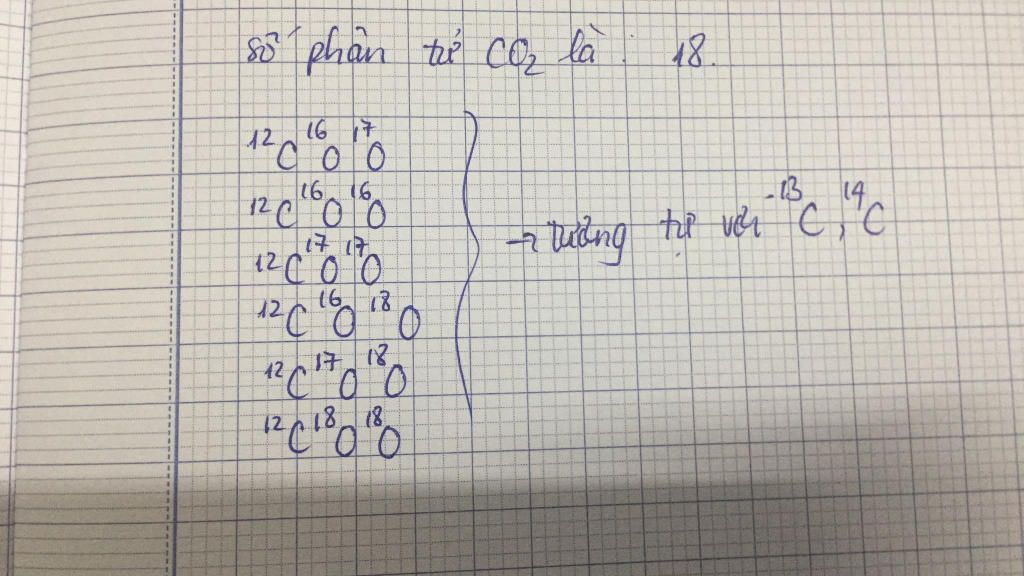 số phân tử CO₂ là : 18.
¹²C ¹⁶O ¹⁷O
¹²C ¹⁶O ¹⁶O
¹²C ¹⁷O ¹⁷O
¹²C ¹⁶O ¹⁸O
¹²C ¹⁷O ¹⁸O
¹²C ¹⁸O ¹⁸O
→ tương tự với ¹³C, ¹⁴C